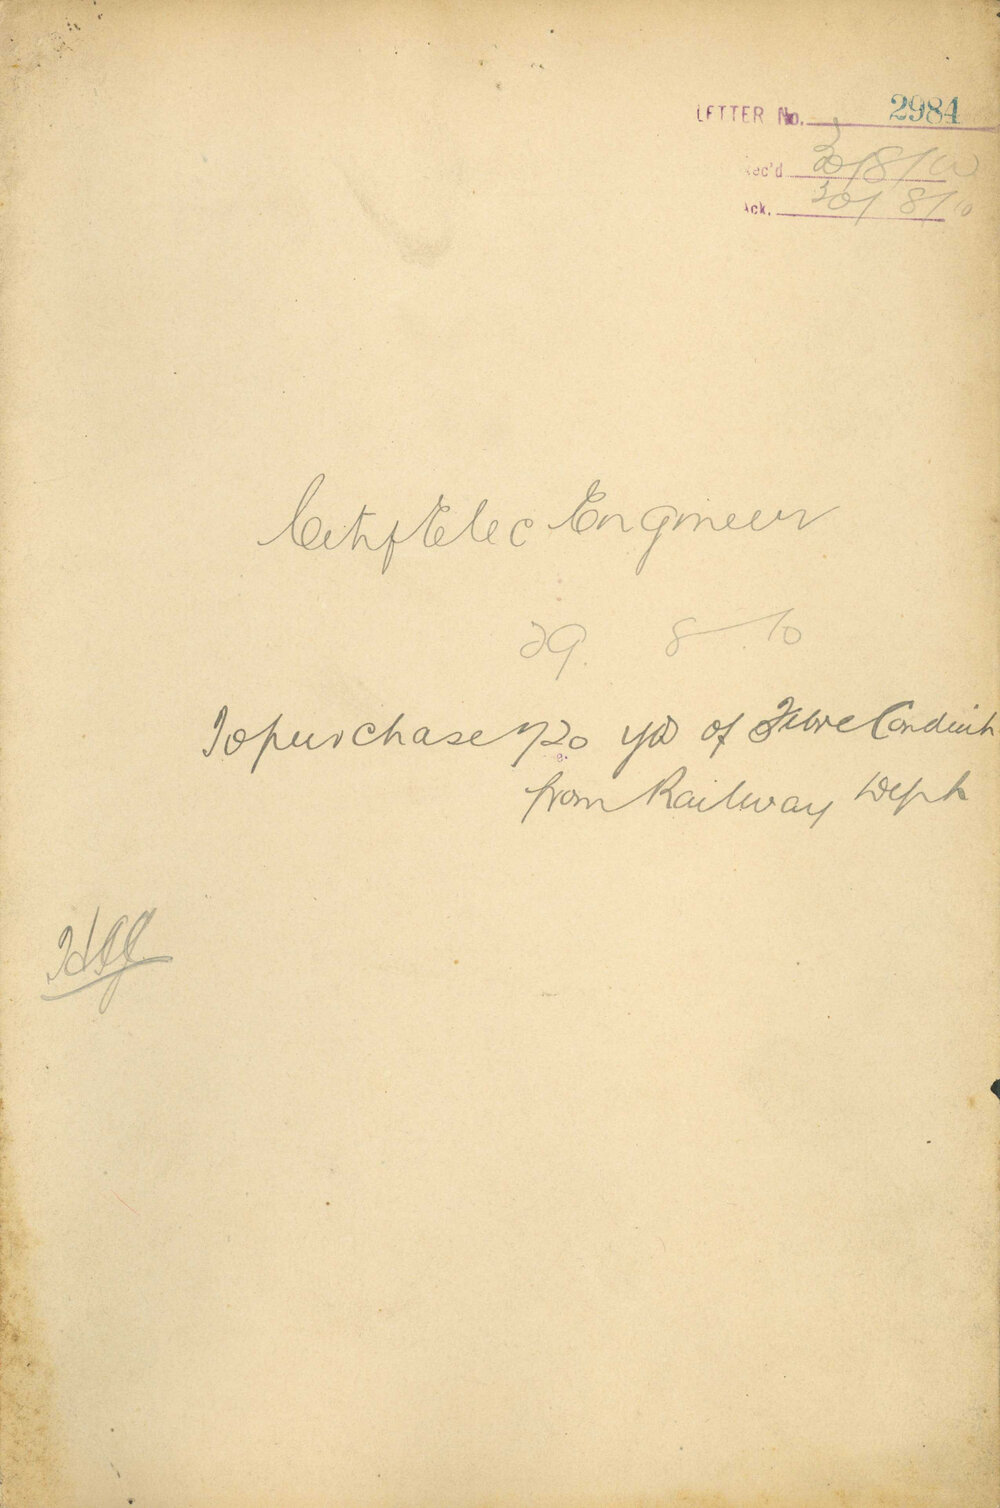 LETTER No. 2984
Rec'd 30/8/10
Ack. 30/8/10
City Elec Engineer
29. 8 10
To purchase 720 yds of Fibre Conduit
from Railway Dept